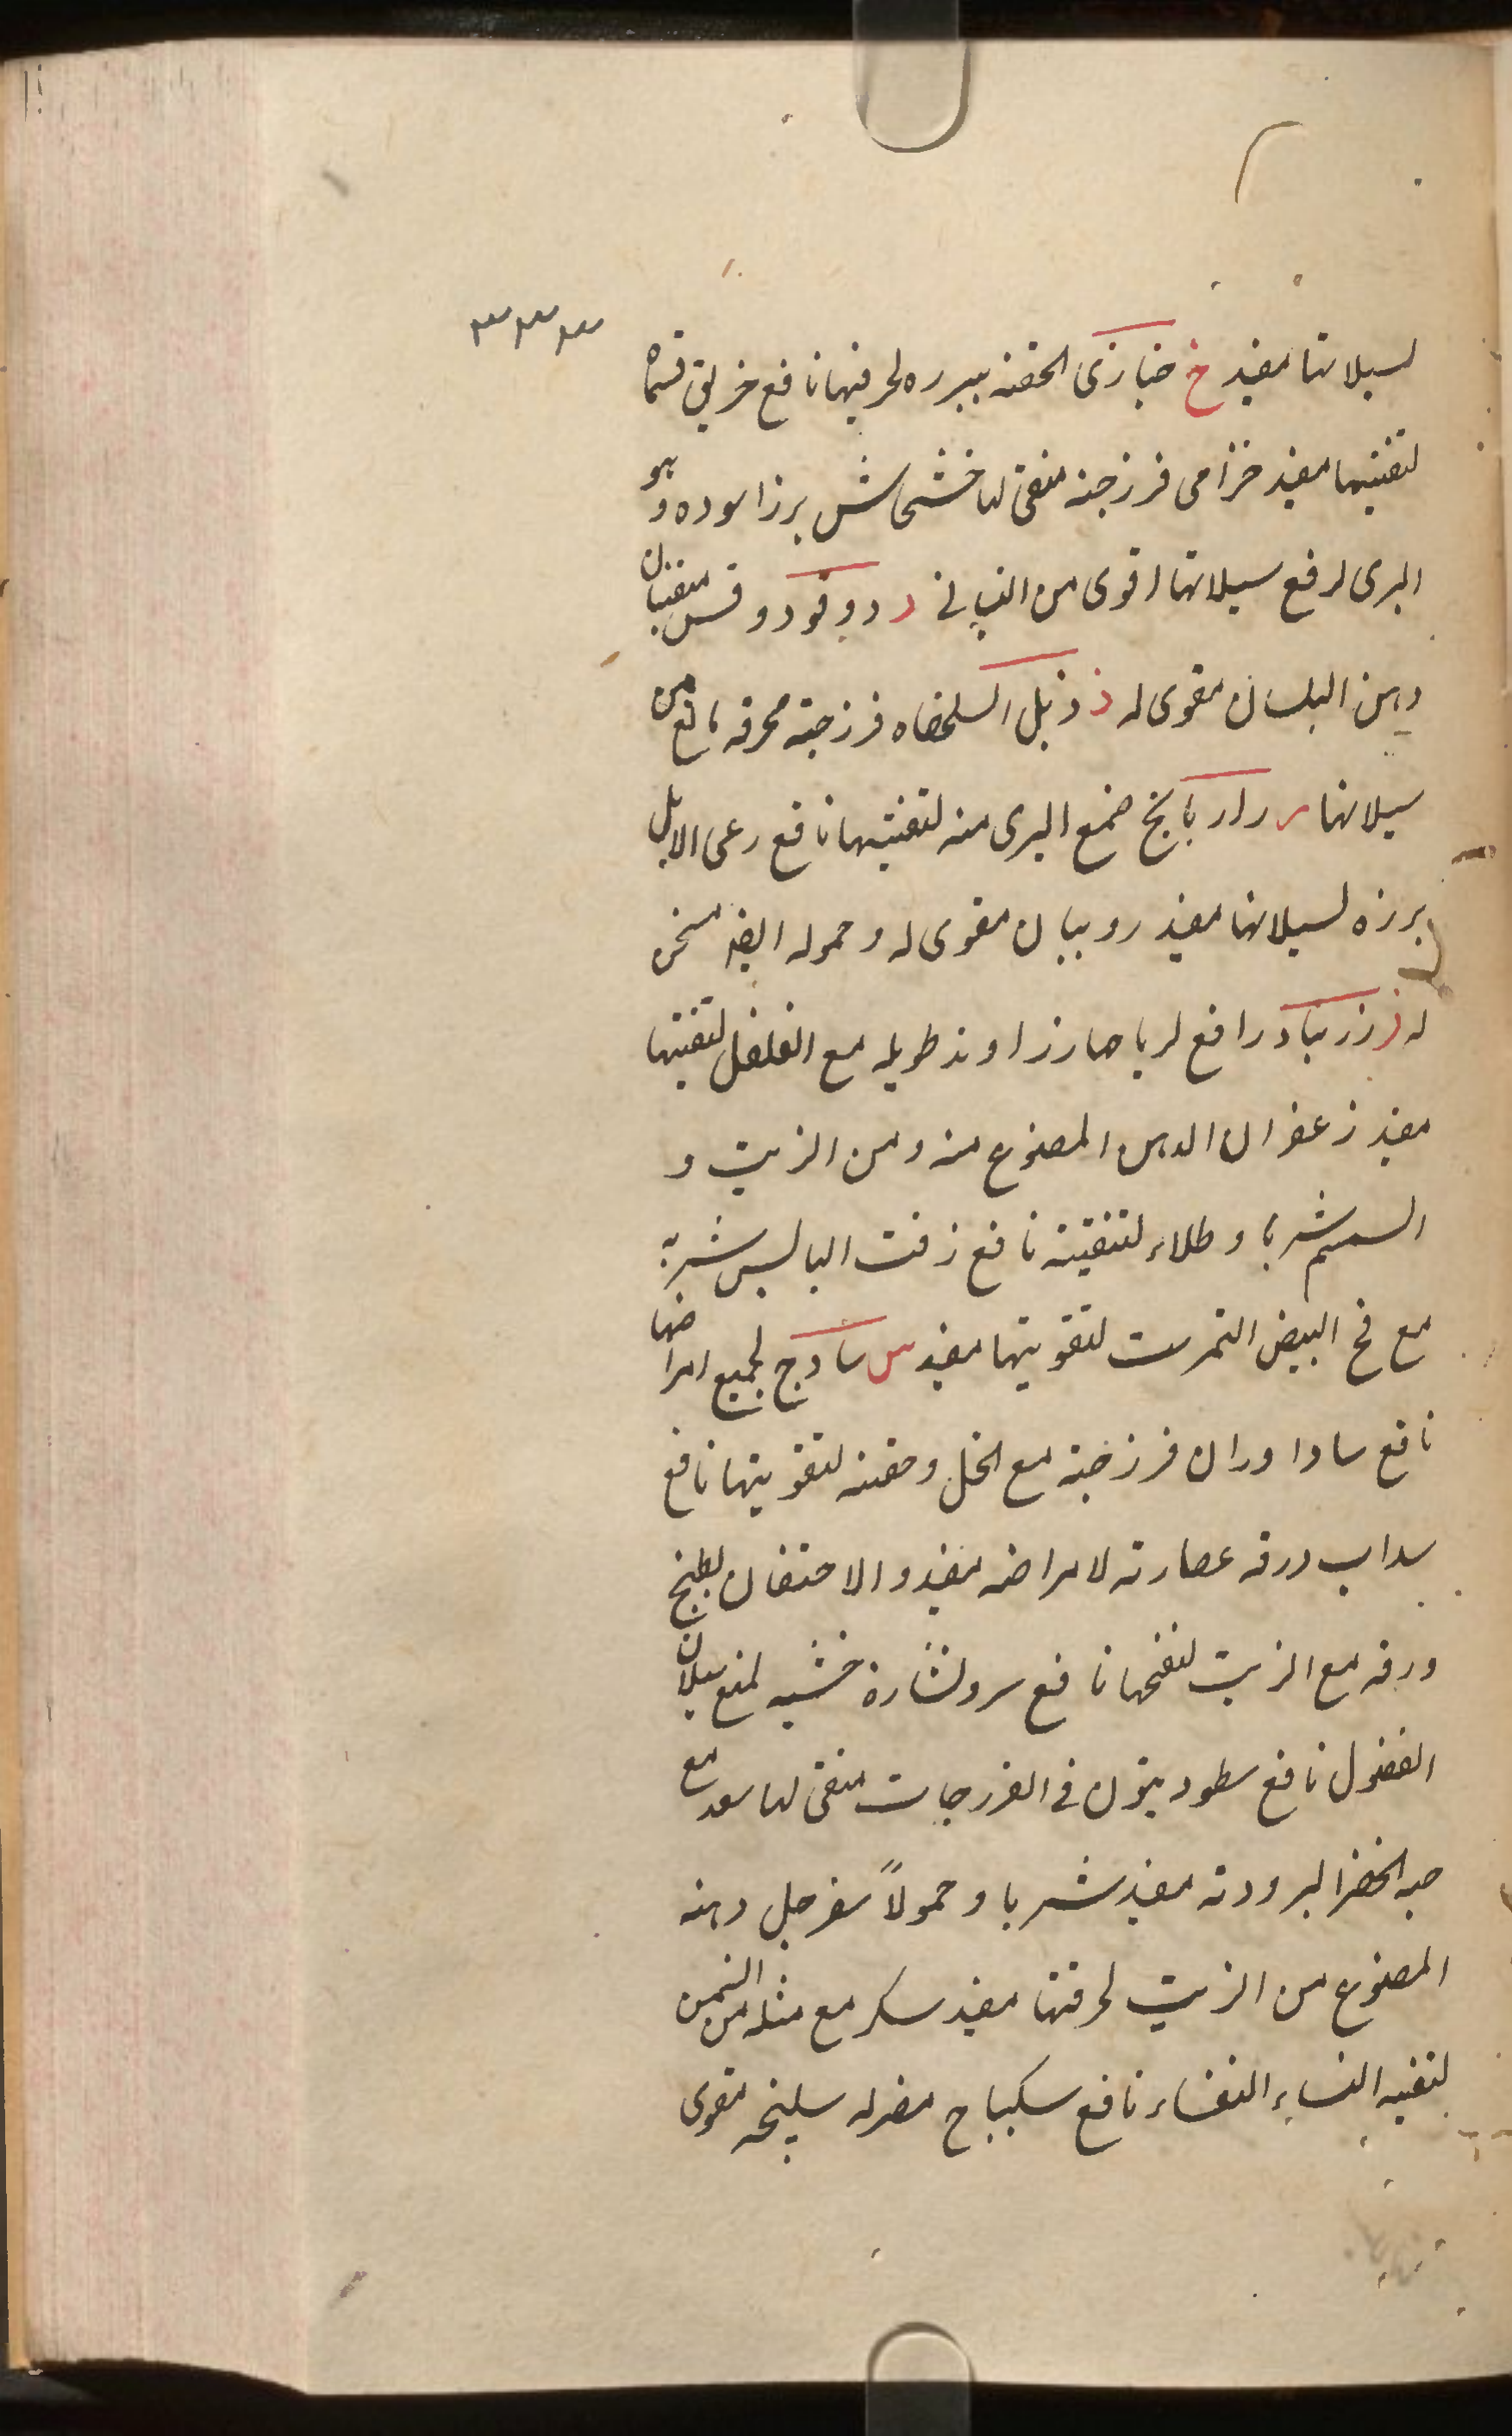 ٣٣٣
لسيلانها مفيد خ خبازى الحقنه ببرزه لحرقتها نافع خربق قسماه
لتنقيتها مفيد خزامى فرزجته منقى لها خشخاش برز اسوده وهو
البرى لرفع سيلانها اقوى من البستانى د دوقو دوقس منقيان
دهن البلسان مقوى له ذ ذبل السلحفاه فرزجته محرقه مانع من
سيلانها ر رازيانج صمغ البرى منه لتنقيتها نافع رعى الابل
برزه لسيلانها مفيد روبيان مقوى له وحموله ايضا مسخن
له ز زرنباد رافع لرياحها رزاوند طويله مع الفلفل لتنقيتها
مفيد زعفران الدهن المصنوع منه ومن الزيت و
السمسم شربا وطلاء لتنقيته نافع زفت اليابس شربه
مع مح البيض النمرست لتقويتها مفيد س سادج لجميع امراضها
نافع ساداوران فرزجته مع الخل وحقنه لتقويتها نافع
سداب ورقه عصارته لامراضه مفيد والاحتقان بطبخ
ورقه مع الزيت لنفخها نافع سرو نشارة خشبه لمنع سيلان
الفضول نافع سطوريون فى الفرزجات منقى لها سعد مع
حبه الخضرا لبرودته مفيد شربا وحمولاً سفرجل دهنه
المصنوع من الزيت لحرقتها مفيد سكر مع مثله من السمن
لتنقيه النساء النفساء نافع سكباج مضر له سليخه مقوى